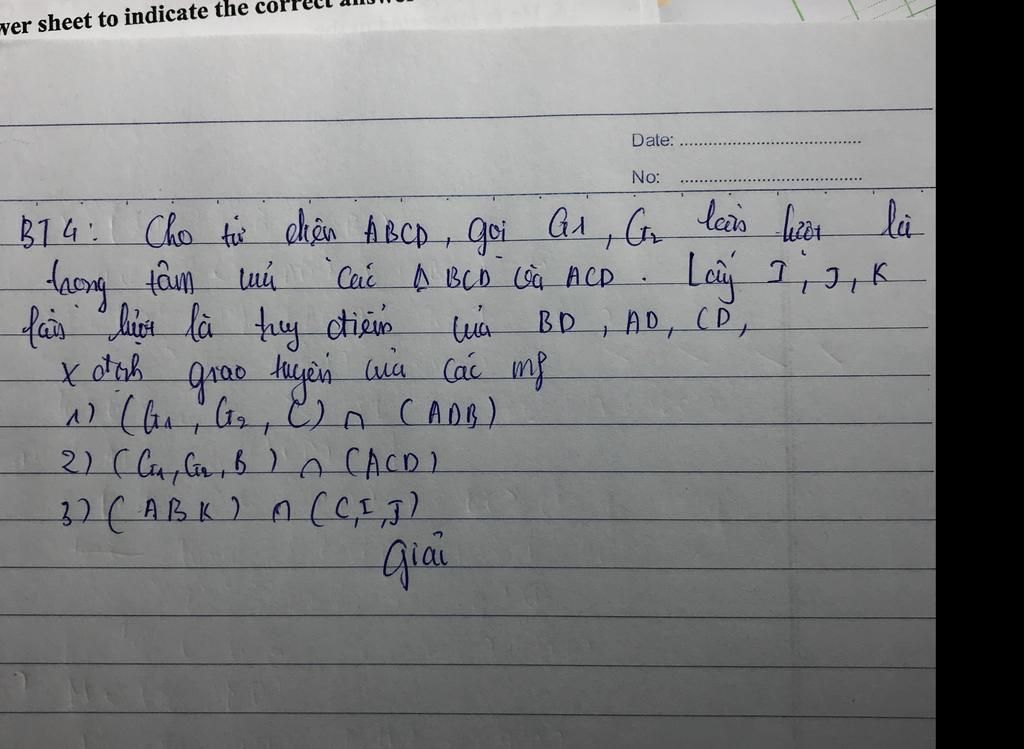 wer sheet to indicate the correct answer
Date:
No:
BT4: Cho tứ diện ABCD, gọi G1, G2 lần lượt là
trọng tâm của các Δ BCD và ACD. Lấy I, J, K
lần lượt là trung điểm của BD, AD, CD,
x định giao tuyến của các mp
1) (G1, G2, C) ∩ (ADB)
2) (G1, G2, B) ∩ (ACD)
3) (ABK) ∩ (C, I, J)
Giải